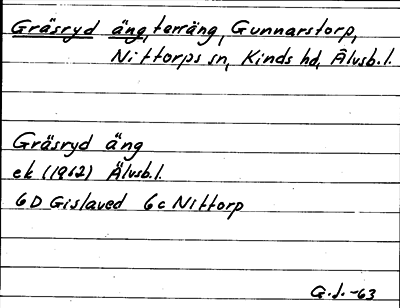 Gräsryd äng, terräng, Gunnarstorp,
Nittorps sn, Kinds hd, Älvsb.l.
Gräsryd äng
ek (1962) Älvsb.l.
6D Gislaved 6c Nittorp
G.J.-63